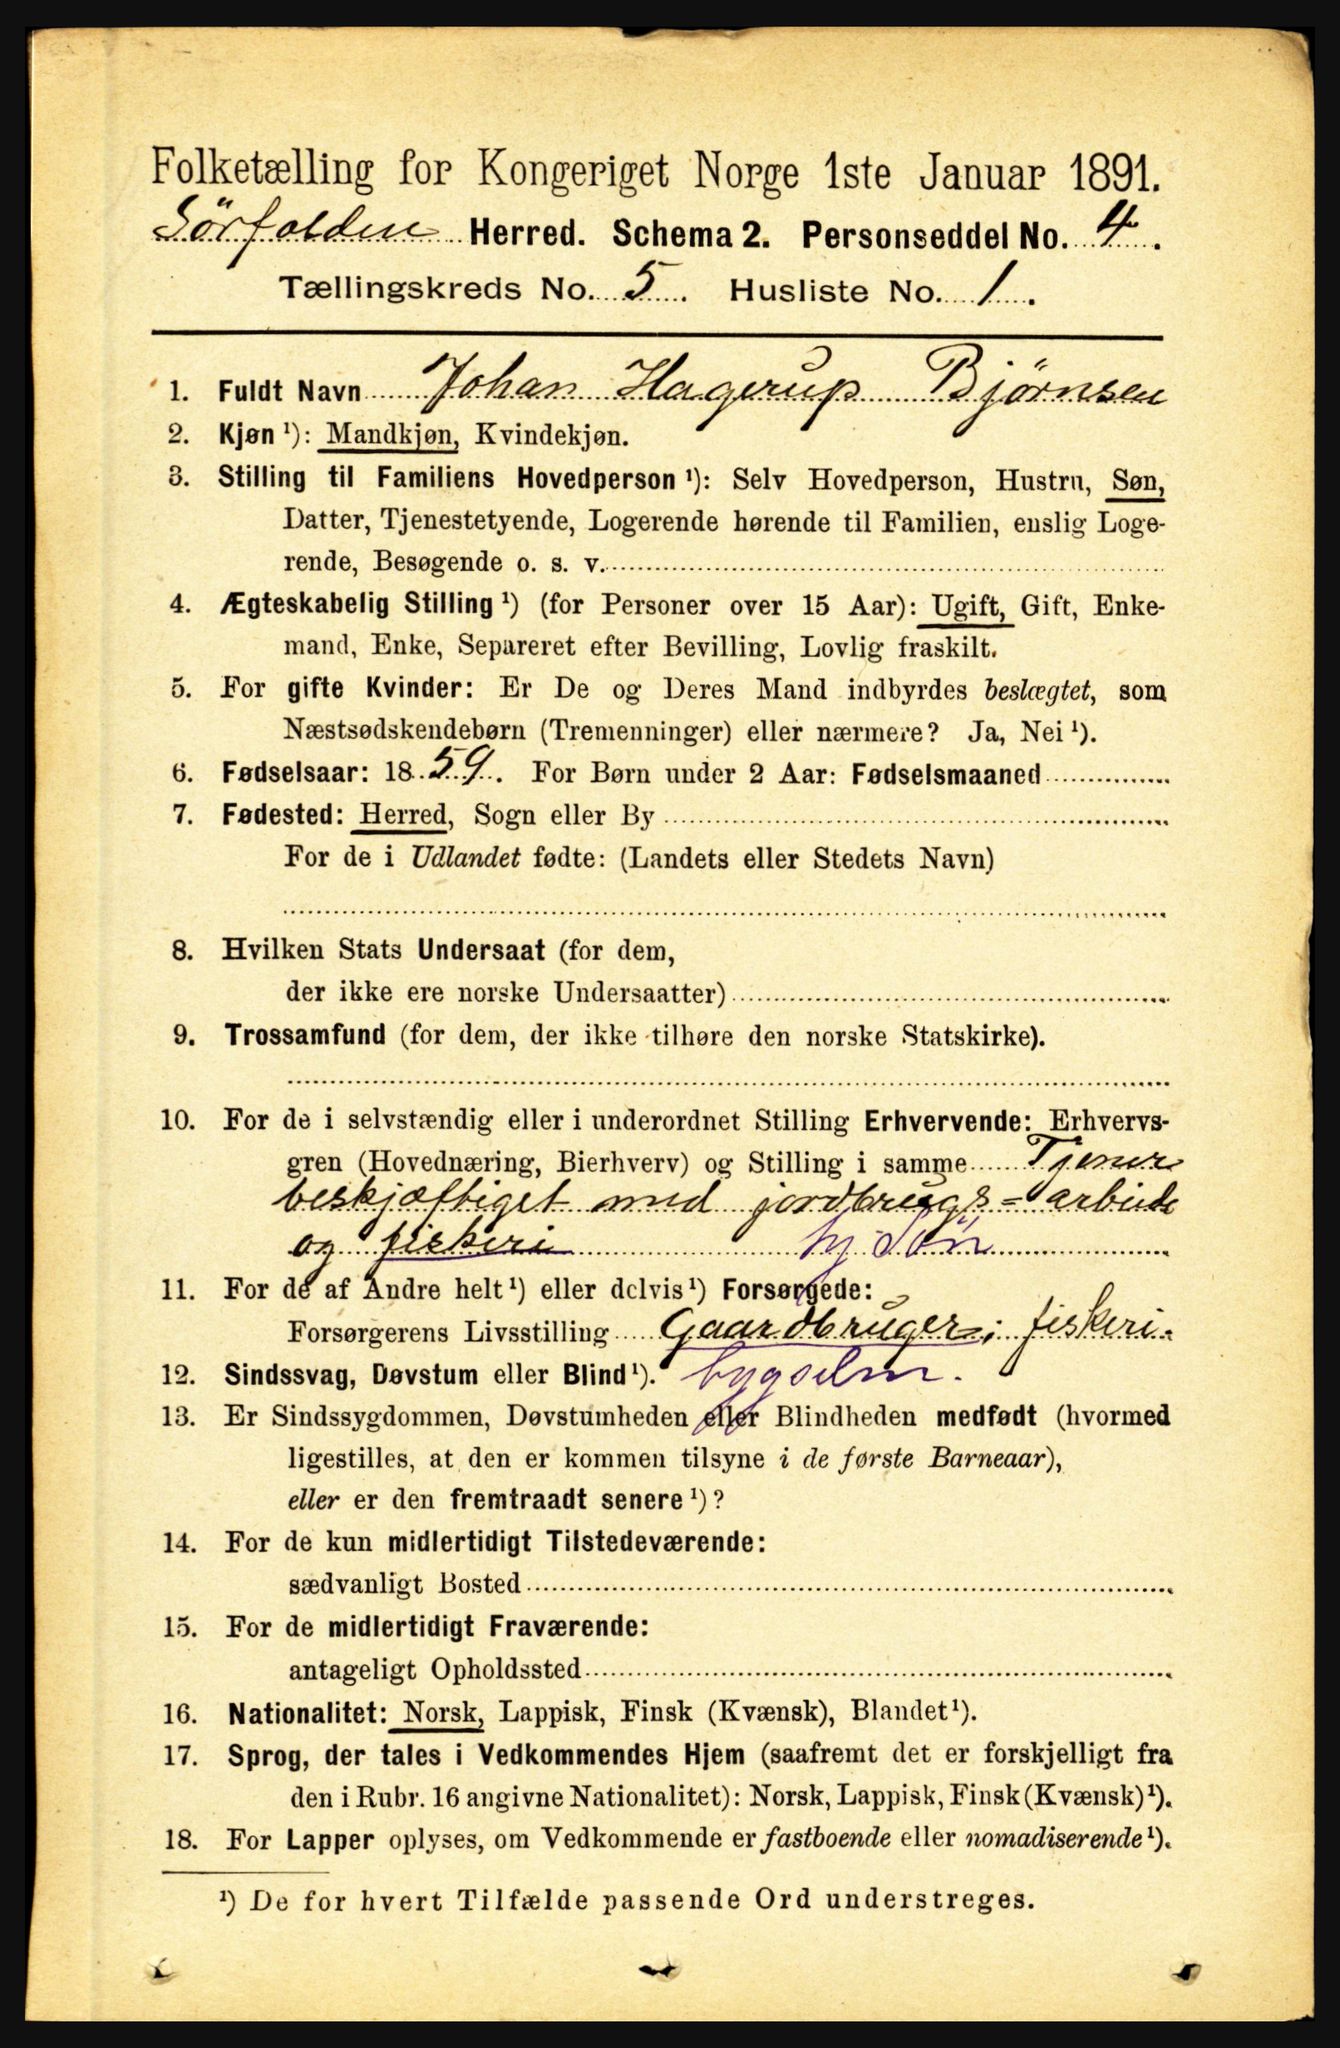 Folketælling for Kongeriget Norge 1ste Januar 1891.
Sørfolden Herred. Schema 2. Personseddel No. 4.
Tællingskreds No. 5. Husliste No. 1.
1. Fuldt Navn Johan Hagerup Bjørnsen
2. Kjøn ¹): Mandkjøn, Kvindekjøn.
3. Stilling til Familiens Hovedperson ¹): Selv Hovedperson, Hustru, Søn,
Datter, Tjenestetyende, Logerende hørende til Familien, enslig Loge-
rende, Besøgende o. s. v.
4. Ægteskabelig Stilling ¹) (for Personer over 15 Aar): Ugift, Gift, Enke-
mand, Enke, Separeret efter Bevilling, Lovlig fraskilt.
5. For gifte Kvinder: Er De og Deres Mand indbyrdes beslægtet, som
Næstsødskendebørn (Tremenninger) eller nærmere? Ja, Nei ¹).
6. Fødselsaar: 1859. For Børn under 2 Aar: Fødselsmaaned
7. Fødested: Herred, Sogn eller By
For de i Udlandet fødte: (Landets eller Stedets Navn)
8. Hvilken Stats Undersaat (for dem,
der ikke ere norske Undersaatter)
9. Trossamfund (for dem, der ikke tilhøre den norske Statskirke).
10. For de i selvstændig eller i underordnet Stilling Erhvervende: Erhvervs-
gren (Hovednæring, Bierhverv) og Stilling i samme Tjener
beskjæftiget med jordbrugs = arbeide
og fiskeri by Søn
11. For de af Andre helt ¹) eller delvis ¹) Forsørgede:
Forsørgerens Livsstilling Gaardbruger; fiskeri.
12. Sindssvag, Døvstum eller Blind ¹). bygselm.
13. Er Sindssygdommen, Døvstumheden eller Blindheden medfødt (hvormed
ligestilles, at den er kommen tilsyne i de første Barneaar),
eller er den fremtraadt senere ¹)?
14. For de kun midlertidigt Tilstedeværende:
sædvanligt Bosted
15. For de midlertidigt Fraværende:
antageligt Opholdssted
16. Nationalitet: Norsk, Lappisk, Finsk (Kvænsk), Blandet ¹).
17. Sprog, der tales i Vedkommendes Hjem (saafremt det er forskjelligt fra
den i Rubr. 16 angivne Nationalitet): Norsk, Lappisk, Finsk (Kvænsk) ¹).
18. For Lapper oplyses, om Vedkommende er fastboende eller nomadiserende ¹).
¹) De for hvert Tilfælde passende Ord understreges.